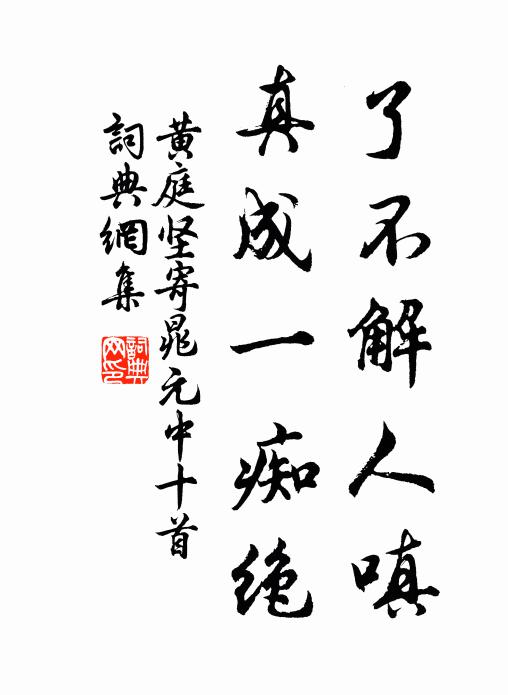 了不解人嗔
真成一痴绝
黄庭坚寄晁元中十首
詞典網集
詞典网印